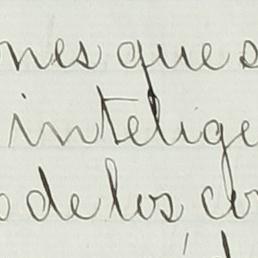 nes que s
intelige
o de los co